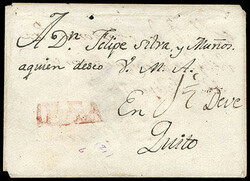 A Dn. Felipe Silva, y Muños.
aquien deseo V. M. A.
En 1½ Deve
Quito